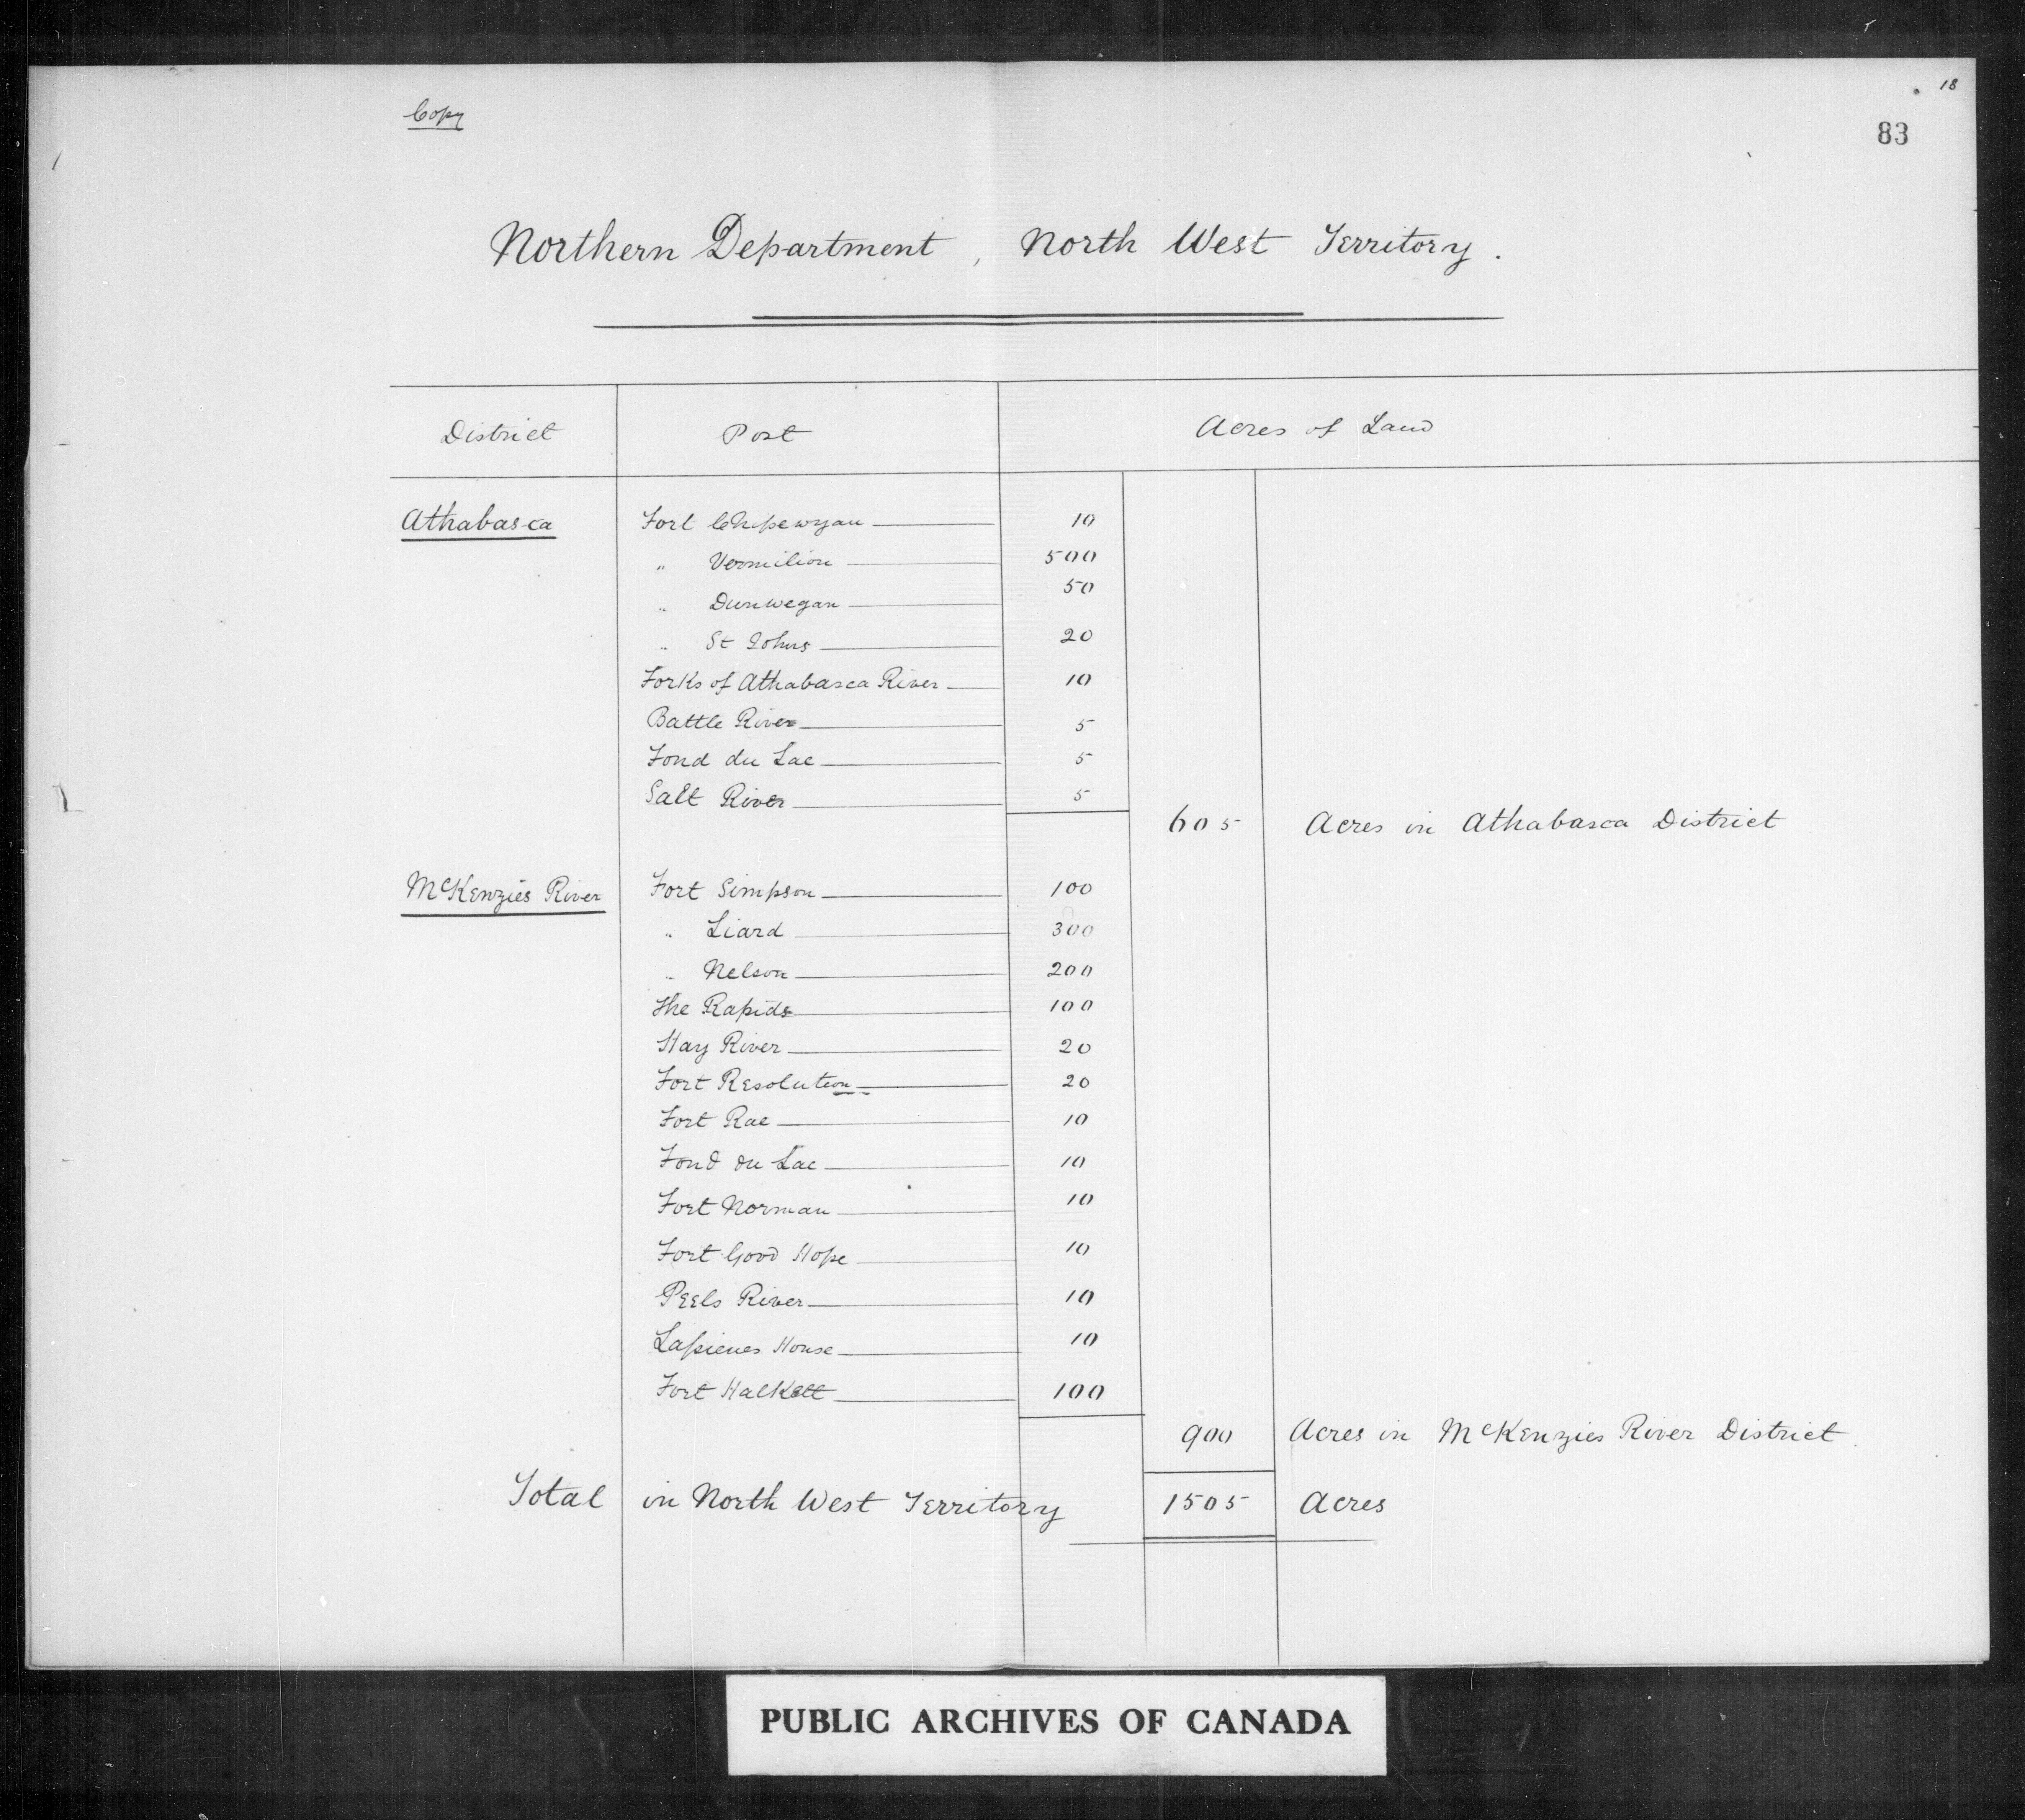 18
83
Copy
Northern Department, North West Territory.
District Post Acres of Land
Athabasca Fort Chipewyan 10
" Vermilion 500
" Dunwegan 50
" St Johns 20
Forks of Athabasca River 10
Battle River 5
Fond du Lac 5
Salt River 5
605 Acres in Athabasca District
McKenzies River Fort Simpson 100
" Liard 300
" Nelson 200
The Rapids 100
Hay River 20
Fort Resolution 20
Fort Rae 10
Fond du Lac 10
Fort Norman 10
Fort Good Hope 10
Peels River 10
Lapienes House 10
Fort Halkett 100
900 Acres in McKenzies River District
Total in North West Territory 1505 Acres
PUBLIC ARCHIVES OF CANADA